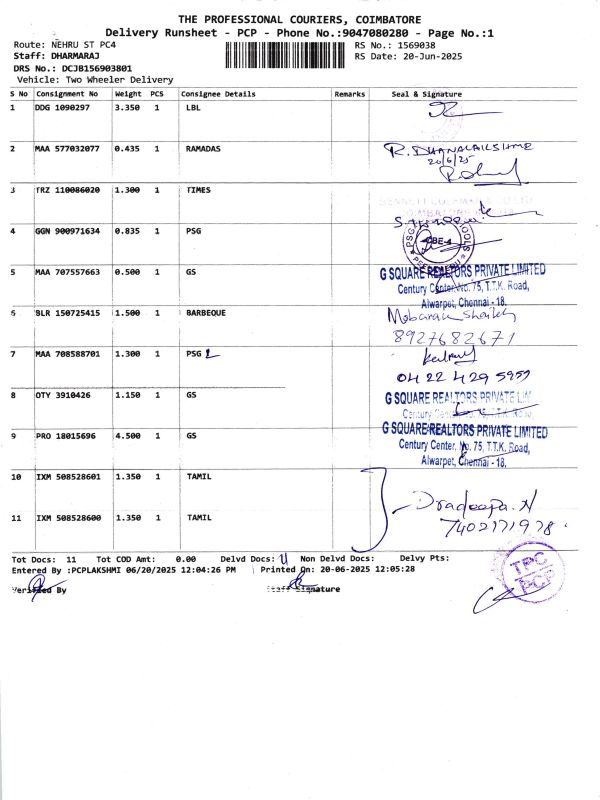 THE PROFESSIONAL COURIERS, COIMBATORE
Delivery Runsheet - PCP - Phone No.:9047080280 - Page No.:1
Route: NEHRU ST PC4 RS No.: 1569038
Staff: DHARMARAJ RS Date: 20-Jun-2025
DRS No.: DCJB156903801
Vehicle: Two Wheeler Delivery
S No Consignment No Weight PCS Consignee Details Remarks Seal & Signature
1 DDG 1090297 3.350 1 LBL
2 MAA 577032077 0.435 1 RAMADAS R. DHANALAKSHME
20/6/25
3 TRZ 110086020 1.300 1 TIMES
4 GGN 900971634 0.835 1 PSG CBE-4
5 MAA 707557663 0.500 1 GS G SQUARE REALTORS PRIVATE LIMITED
Century Center, No. 75, T.T.K. Road,
Alwarpet, Chennai - 18.
6 BLR 150725415 1.500 1 BARBEQUE Mobarak Shaikh
8927682671
7 MAA 708588701 1.300 1 PSG
0422 429 5959
8 OTY 3910426 1.150 1 GS G SQUARE REALTORS PRIVATE LIM
9 PRO 18015696 4.500 1 GS G SQUARE REALTORS PRIVATE LIMITED
Century Center, No. 75, T.T.K. Road,
Alwarpet, Chennai - 18.
10 IXM 508528601 1.350 1 TAMIL Pradeepa.N
7402171978
11 IXM 508528600 1.350 1 TAMIL
Tot Docs: 11 Tot COD Amt: 0.00 Delvd Docs: 11 Non Delvd Docs: Delvy Pts:
Entered By :PCPLAKSHMI 06/20/2025 12:04:26 PM Printed On: 20-06-2025 12:05:28
Verified By Staff Signature
TPC
PCP